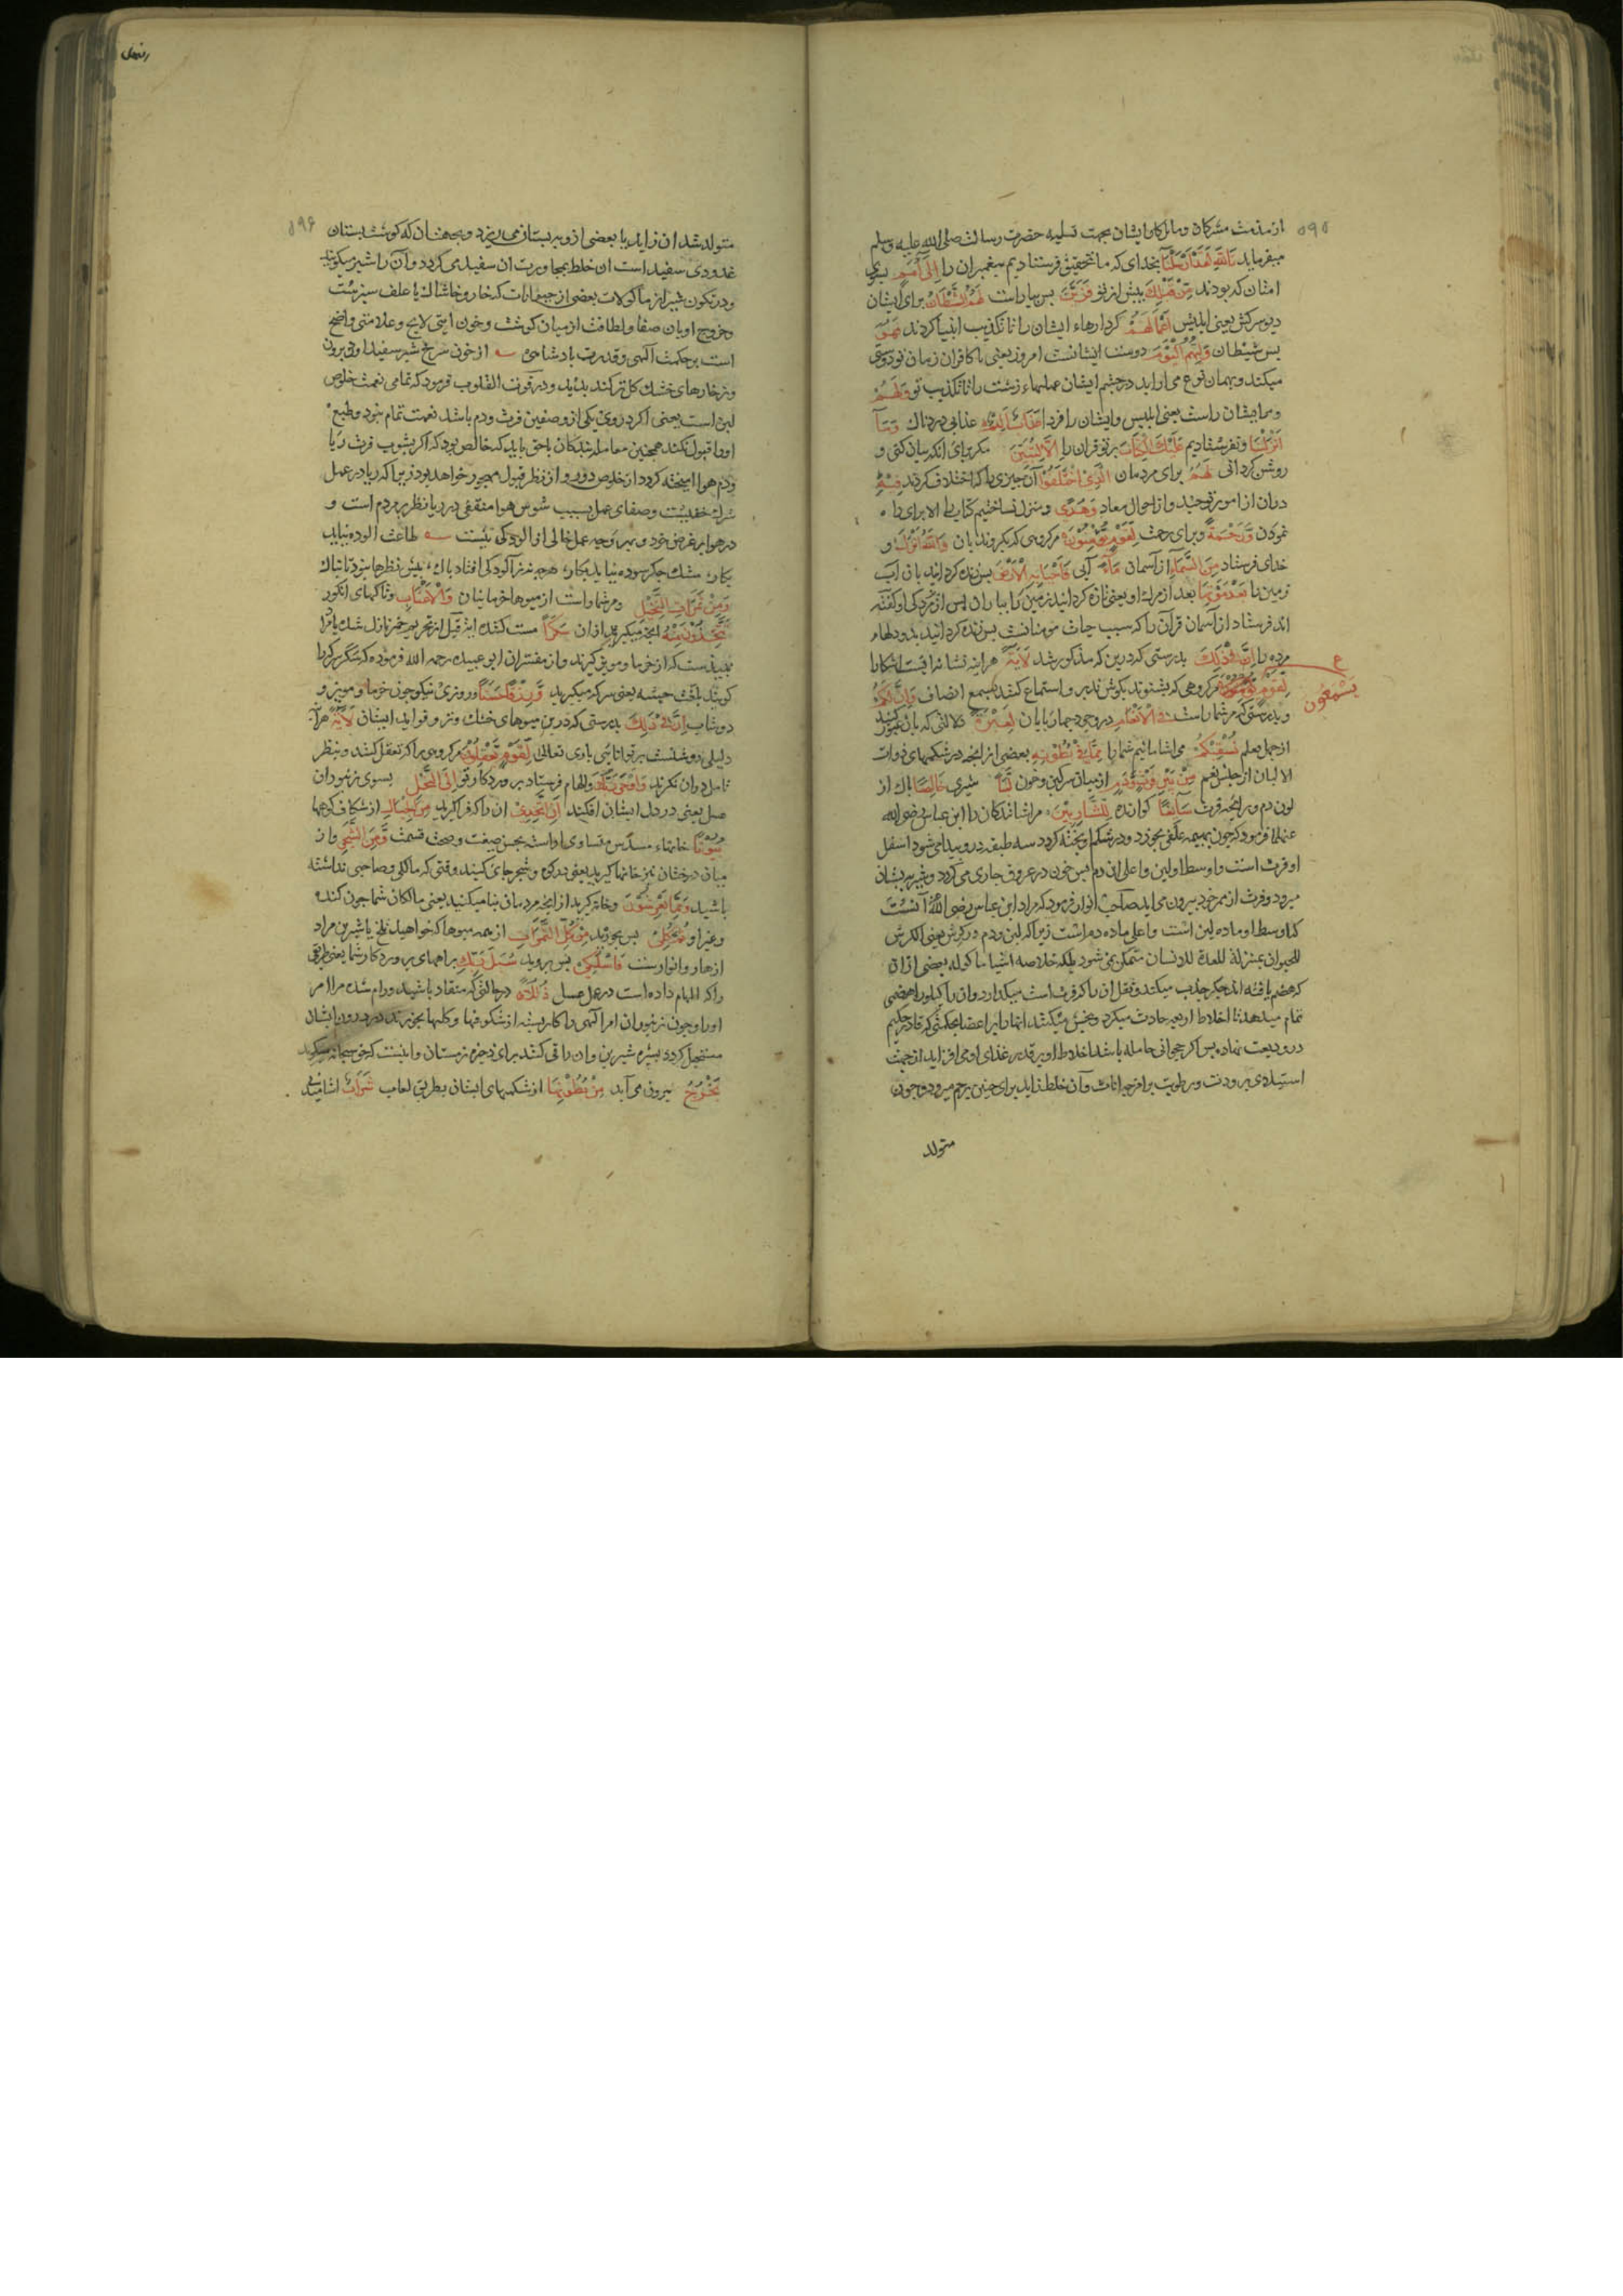 ۵۹۵
از مذمت مشرکان و مال کار ایشان بجهت تسلیه حضرت رسالت صلی الله علیه وسلم
میفرماید تَاللّٰهِ لَقَدْ اَرْسَلْنَا بخدای که ما بتحقیق فرستادیم پیغمبران را اِلٰی اُمَمٍ بسوی
امتان که بودند مِنْ قَبْلِكَ پیش از تو فَزَيَّنَ پس بیاراست لَهُمُ الشَّيْطَانُ برای ایشان
دیو سرکش یعنی ابلیس اَعْمَالَهُمْ کردارهاء ایشان را تا تکذیب انبیا کردند فَهُوَ
پس شیطان وَلِيُّهُمُ الْيَوْمَ دوست ایشانست امروز یعنی با کافران زمان تو دوستی
میکند و بهمان نوع می اراید در چشم ایشان عملهاء زشت را تا تکذیب تو وَلَهُمْ
و مر ایشان راست یعنی ابلیس و ایشان را فردا عَذَابٌ اَلِيمٌ عذابی دردناك وَمَا
اَنْزَلْنَا و نفرستادیم عَلَيْكَ الْكِتَابَ بر تو قران را اِلَّا لِتُبَيِّنَ مکر برای انکه بیان کنی و
روشن کردانی لَهُمُ برای مردمان الَّذِي اخْتَلَفُوا آن چیزی را که اختلاف کردند فِيهِ
دران از امور توحید و از احوال معاد وَهُدًى و منزل نساختیم کتاب را الا برای راه
نمودن وَرَحْمَةً و برای رحمت لِقَوْمٍ يُؤْمِنُونَ مر کروهی که بکروند بان وَاللّٰهُ اَنْزَلَ و
خدای فرستاد مِنَ السَّمَاءِ از آسمان مَاءً آبی فَاَحْيَا بِهِ الْاَرْضَ پس زنده کردانید بان اب
زمین را بَعْدَ مَوْتِهَا بعد از مرك او یعنی تازه کردانید زمین را بباران پس از مردکی او کفته
اند فرستاد از آسمان قرآن را که سبب حیات مومنانست پس زنده کردانید بدو دلهاء
مرده را اِنَّ فِي ذٰلِكَ بدرستی که درین که مذکور شد لَاٰيَةً هراینه نشانه ایست اشکارا
لِقَوْمٍ مر کروهی که بشنوند بکوش تدبر و استماع کنند بسمع انصاف وَاِنَّ لَكُمْ
يَسْمَعُونَ
و بدرستی که مر شما راست فِي الْاَنْعَامِ در وجود چهارپایان لَعِبْرَةً دلالتی که بان عبور کنید
از جهل بعلم نُسْقِيكُمْ می اشامانیم شما را مِمَّا فِي بُطُونِهِ بعضی از انچه در شکمهای ذوات
الالبان از جنس نعم مِنْ بَيْنِ فَرْثٍ وَدَمٍ از میان سرکین و خون لَبَنًا شیری خَالِصًا پاك از
لون دم و رایحه فرث سَائِغًا کوارنده لِلشَّارِبِينَ مر اشامندکان را ابن عباس رضی الله
عنهما فرمود که چون بهیمه علفی بخورد و در شکم او پخته کردد سه طبقه درو پیدا می شود اسفل
او فرث است و اوسط او لبن و اعلی ان دم پس خون در عروق جاری می کردد و شیر بپستان
میرود و فرث از ممر خود بیرون می اید صاحب انوار فرمود که مراد ابن عباس رضی الله آنست
که اوسط او ماده لبن است و اعلی ماده دم است زیرا که لبن و دم در کرش یعنی الکرش
للحیوان بمنزلة المعدة للانسان متمکن نمی شود بلکه خلاصه اشیاء ماکوله بعضی ازان
که هضم یافته اند جکر جذب میکند و ثقل ان را که فرث است میکذارد وان را کیلوس هضمی
تمام میدهد تا اخلاط اربعه حادث میکردد و بخش میکند انها را بر اعضا بحکمتی که قادر حکیم
درو ودیعت نهاده پس اکر حیوانی حامله باشد اخلاط او بر قدر غذای او می افزاید از جهت
استیلای برودت و رطوبت بر مزاج اناث و آن خلط زاید برای جنین برحم میرود و چون
متولد
۵۹۶
متولد شد ان زاید یا بعضی ازو بر پستان می ریزد و بجهت ان که کوشت پستان
غدودی سفید است ان خلط بمجاورت ان سفید می کردد و آن را شیر میکویند
و در تکون شیر از ماکولات بعضی از حیوانات که خار و خاشاك یا علف سبز هست
و خروج او بان صفا و لطافت از میان کوشت و خون ایتی لایح و علامتی واضح
است بر حکمت آلهی و قدرت پادشاهی از خون سرخ شیر سفید او برون
وز خارهای خشك کل تر کند پدید و در قوت القلوب فرمود که تمامی نعمت خلوص
لبن است یعنی اکر در وی یکی از وصفین فرث و دم باشد نعمت تمام نبود و طبع
او را قبول نکند همچنین معامله بندکان باحق باید که خالص بود که اکر بشوب فرث ریا
و دم هوا امیخته کردد از خلوص دور و از نظر قبول مهجور خواهد بود زیرا که ریا در عمل
شرك خفیست و صفای عمل بسبب شوس هوا منتفی در ریا نظر بر مردم است و
در هوا بر غرض خود و بهر وجه عمل خالی از الودکی نیست طاعت الوده نیاید
بکار مشك جکر سوده نیاید بکار هر چه نیز آلودکی افتاد پاك پیش نظرها نبود تابناك
وَمِنْ ثَمَرَاتِ النَّخِيلِ و مر شما راست از میوها خرمابنان وَالْاَعْنَابِ و تاکهای انکور
تَتَّخِذُونَ مِنْهُ انچه میکیرید ازان سَكَرًا مست کننده این قبل از تحریم خمر نازل شد یا مراد
نبیذست که از خرما و مویز کیرند و از مفسران ابو عبیده رحمه الله فرموده که سکر سرکه را
کویند بلغت حبشه یعنی سرکه میکیرید وَرِزْقًا حَسَنًا و روزی نیکو چون خرما و مویز و
دوشاب اِنَّ فِي ذٰلِكَ بدرستی که درین میوهای خشك و تر و فواید ایشان لَاٰيَةً هراینه
دلیلی روشنست بر توانائی باری تعالی لِقَوْمٍ يَعْقِلُونَ مر کروهی را که تعقل کنند و بنظر
تامل دران نکرند وَاَوْحٰی رَبُّكَ و الهام فرستاد پروردکار تو اِلَی النَّحْلِ بسوی زنبوران
عسل یعنی در دل ایشان افکند اَنِ اتَّخِذِي ان را که فرا کیرید مِنَ الْجِبَالِ از شکاف کوهها
بُيُوتًا خانهاء مسدس متساوی اراسته بحسن صنعت و صحت قسمت وَمِنَ الشَّجَرِ و از
میان درختان نیز خانها کیرید یعنی در کوه و شجر جای کنید وقتی که مالکی و صاحبی نداشته
باشید وَمِمَّا يَعْرِشُونَ و خانه کیرید از انچه مردمان بنا میکنند یعنی مالکان شما چون کنده
و غیر او ثُمَّ كُلِي پس بخورید مِنْ كُلِّ الثَّمَرَاتِ از همه میوها که خواهید تلخ یا شیرین مراد
ازهار و انوارست فَاسْلُكِي پس بروید سُبُلَ رَبِّكِ براههای پروردکار شما یعنی طریقی
را که الهام داده است در عمل عسل ذُلُلًا در حالتی که منقاد باشید و رام شده مر امر
او را و چون زنبوران امر آلهی را کار بسته از شکوفها و کلها بخورند در درون ایشان
مستحیل کردد بشیره شیرین وان را قی کنند برای ذخیره زمستان و اینست که حق سبحانه میکوید
يَخْرُجُ بیرون می آید مِنْ بُطُونِهَا از شکمهای ایشان بطریق لعاب شَرَابٌ اشامیدنی